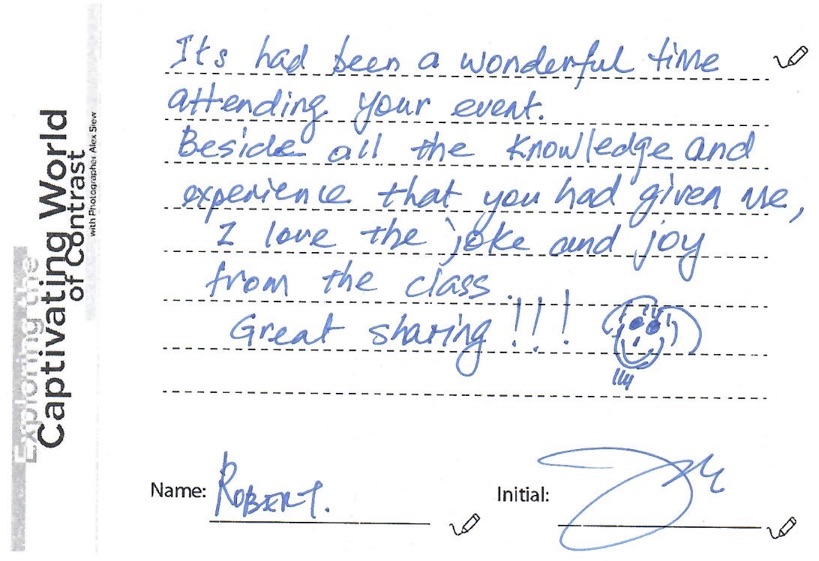 Exploring the
Captivating World
of Contrast
with Photographer Alex Siew
Its had been a wonderful time
attending your event.
Beside all the knowledge and
experience that you had given me,
I love the joke and joy
from the class.
Great sharing!!!
Name: ROBERT.
Initial: